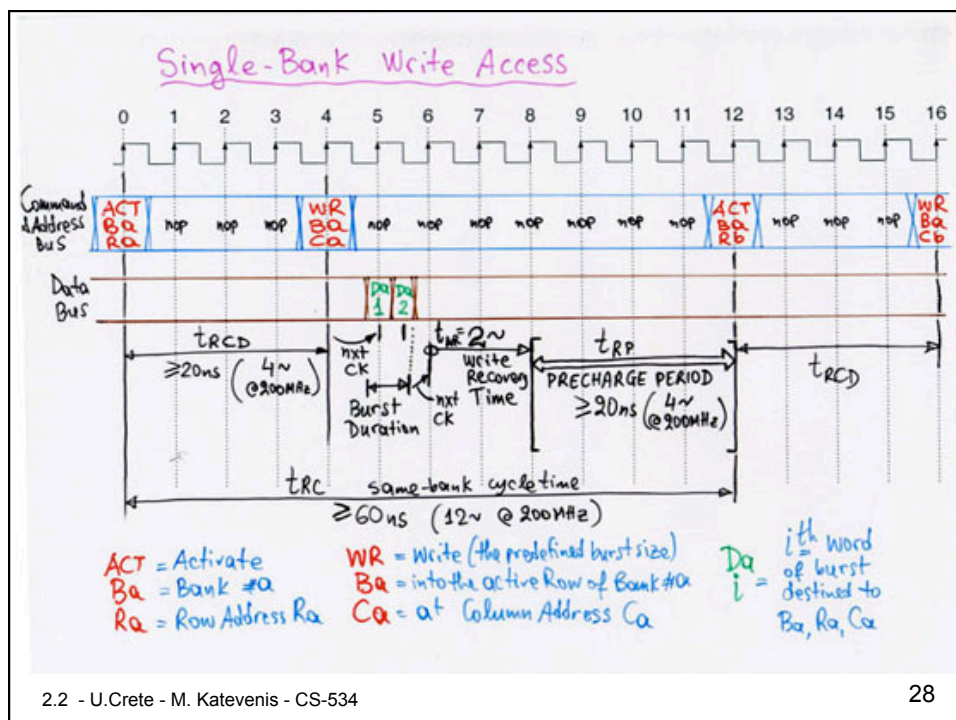 Single-Bank Write Access
0 1 2 3 4 5 6 7 8 9 10 11 12 13 14 15 16
Command
&Address
Bus
ACT
Ba
Ra
nop nop nop
WR
Ba
Ca
nop nop nop nop nop nop nop
ACT
Ba
Rb
nop nop nop
WR
Ba
Cb
Data
Bus
Da
1
Da
2
tRCD
≥20ns (4~ @200MHz)
nxt
CK
Burst
Duration
nxt
CK
tWR=2~
Write
Recovery
Time
tRP
PRECHARGE PERIOD
≥20ns (4~ @200MHz)
tRCD
tRC same-bank cycle time
≥60ns (12~ @ 200MHz)
ACT = Activate
Ba = Bank #a
Ra = Row Address Ra
WR = Write (the predefined burst size)
Ba = into the active Row of Bank #a
Ca = at Column Address Ca
Da
i =
ith word
of burst
destined to
Ba, Ra, Ca
2.2 - U.Crete - M. Katevenis - CS-534
28